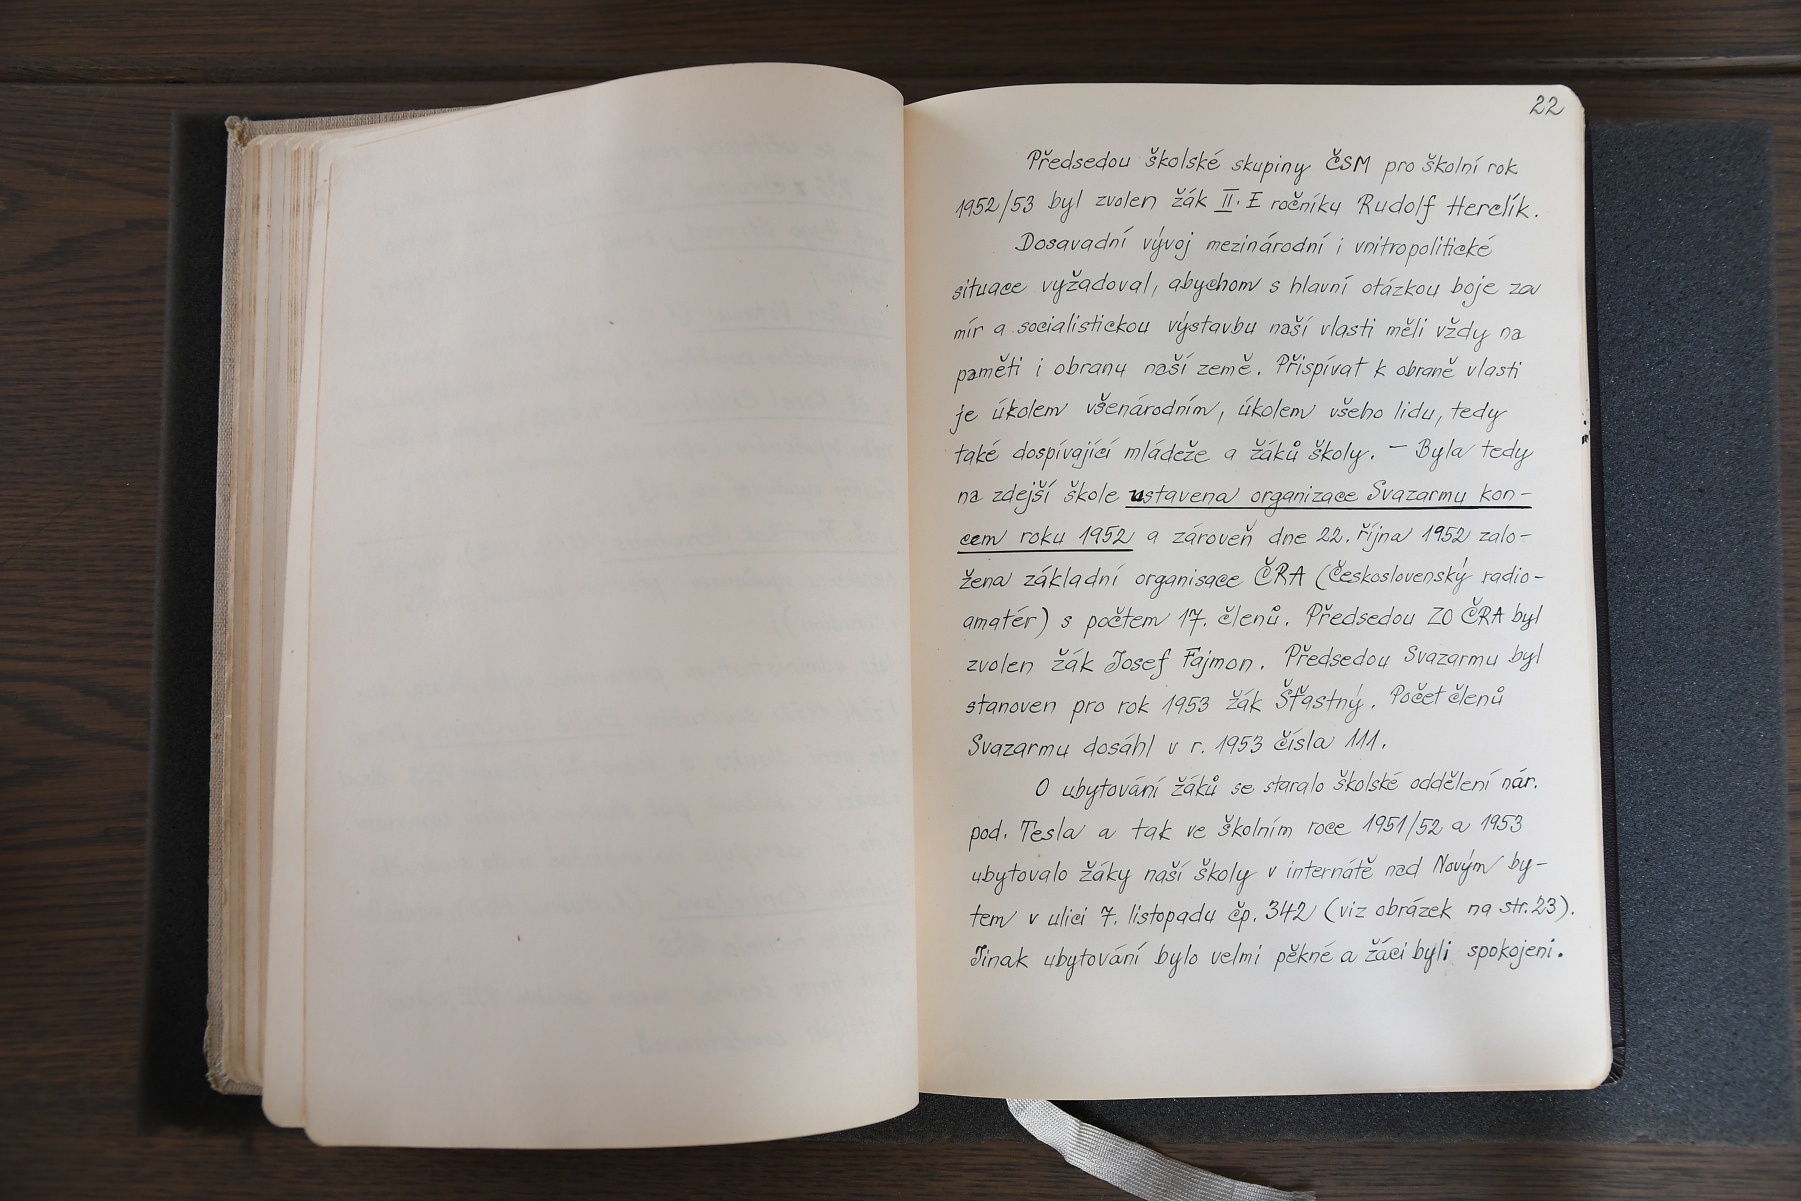 22
Předsedou školské skupiny ČSM pro školní rok
1952/53 byl zvolen žák II. E ročníku Rudolf Herclík.
Dosavadní vývoj mezinárodní i vnitropolitické
situace vyžadoval, abychom s hlavní otázkou boje za
mír a socialistickou výstavbu naší vlasti měli vždy na
paměti i obranu naší země. Přispívat k obraně vlasti
je úkolem všenárodním, úkolem všeho lidu, tedy
také dospívající mládeže a žáků školy. – Byla tedy
na zdejší škole ustavena organizace Svazarmu kon-
cem roku 1952 a zároveň dne 22. října 1952 zalo-
žena základní organisace ČRA (Československý radio-
amatér) s počtem 17. členů. Předsedou ZO ČRA byl
zvolen žák Josef Fajmon. Předsedou Svazarmu byl
stanoven pro rok 1953 žák Šťastný. Počet členů
Svazarmu dosáhl v r. 1953 čísla 111.
O ubytování žáků se staralo školské oddělení nár.
pod. Tesla a tak ve školním roce 1951/52 a 1953
ubytovalo žáky naší školy v internátě nad Novým by-
tem v ulici 7. listopadu čp. 342 (viz obrázek na str. 23).
Jinak ubytování bylo velmi pěkné a žáci byli spokojeni.